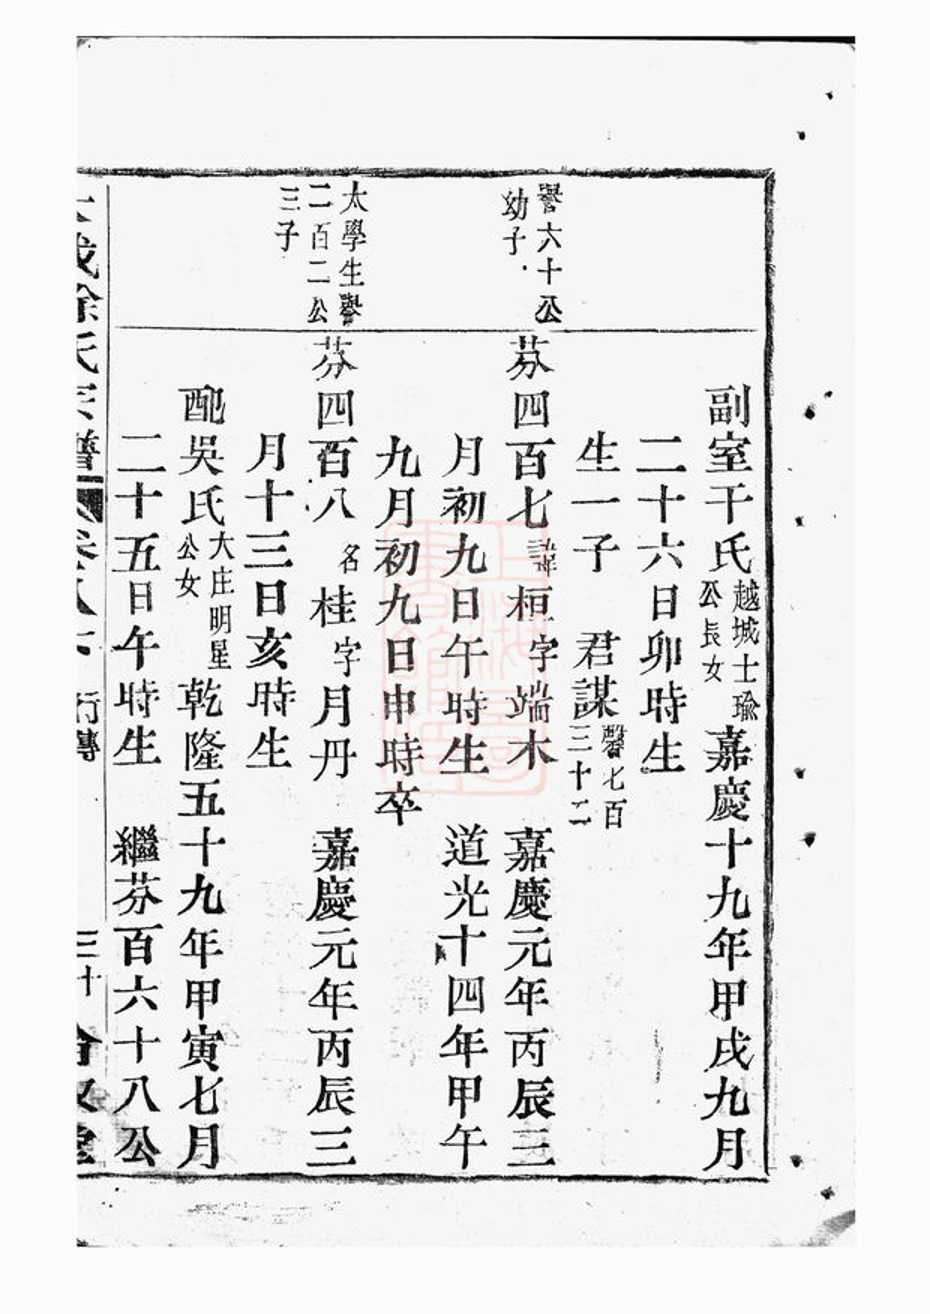 副室干氏越城士瑜公長女嘉慶十九年甲戌九月
二十六日卯時生
生一子　君謀馨七百三十二
譽六十公幼子
芬四百七諱桓字端木　嘉慶元年丙辰三
月初九日午時生　道光十四年甲午
九月初九日申時卒
太學生譽二百二公三子
芬四百八名桂字月丹　嘉慶元年丙辰三
月十三日亥時生
配吳氏大庄明星公女乾隆五十九年甲寅七月
二十五日午時生　繼芬百六十八公
徐氏宗譜　卷八下　行傳　三十